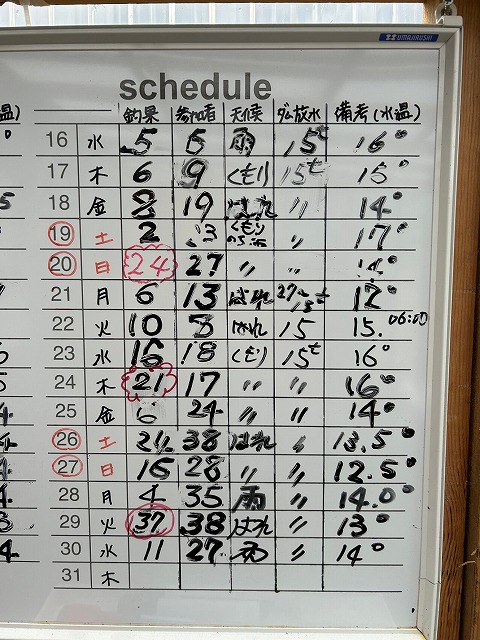 UMAJIRUSHI
schedule
温)
釣果 参加者 天候 ダム放水 備考(水温)
16 水 5 5 雨 15t 16°
17 木 6 9 くもり 15t 15°
18 金 8 19 はれ 〃 14°
19 土 2 くもり 〃 17°
20 日 24 27 〃 〃
21 月 6 13 はれ 12°
22 火 10 はれ 15 15. 06:00
23 水 16 18 くもり 15t 16°
24 木 21 17 〃 〃 16°
25 金 6 24 〃 〃 14°
26 土 38 はれ 〃 13.5°
27 日 15 28 〃 〃 12.5°
28 月 4 35 雨 〃 14.0°
29 火 37 38 はれ 〃 13°
30 水 11 27 〃 14°
31 木